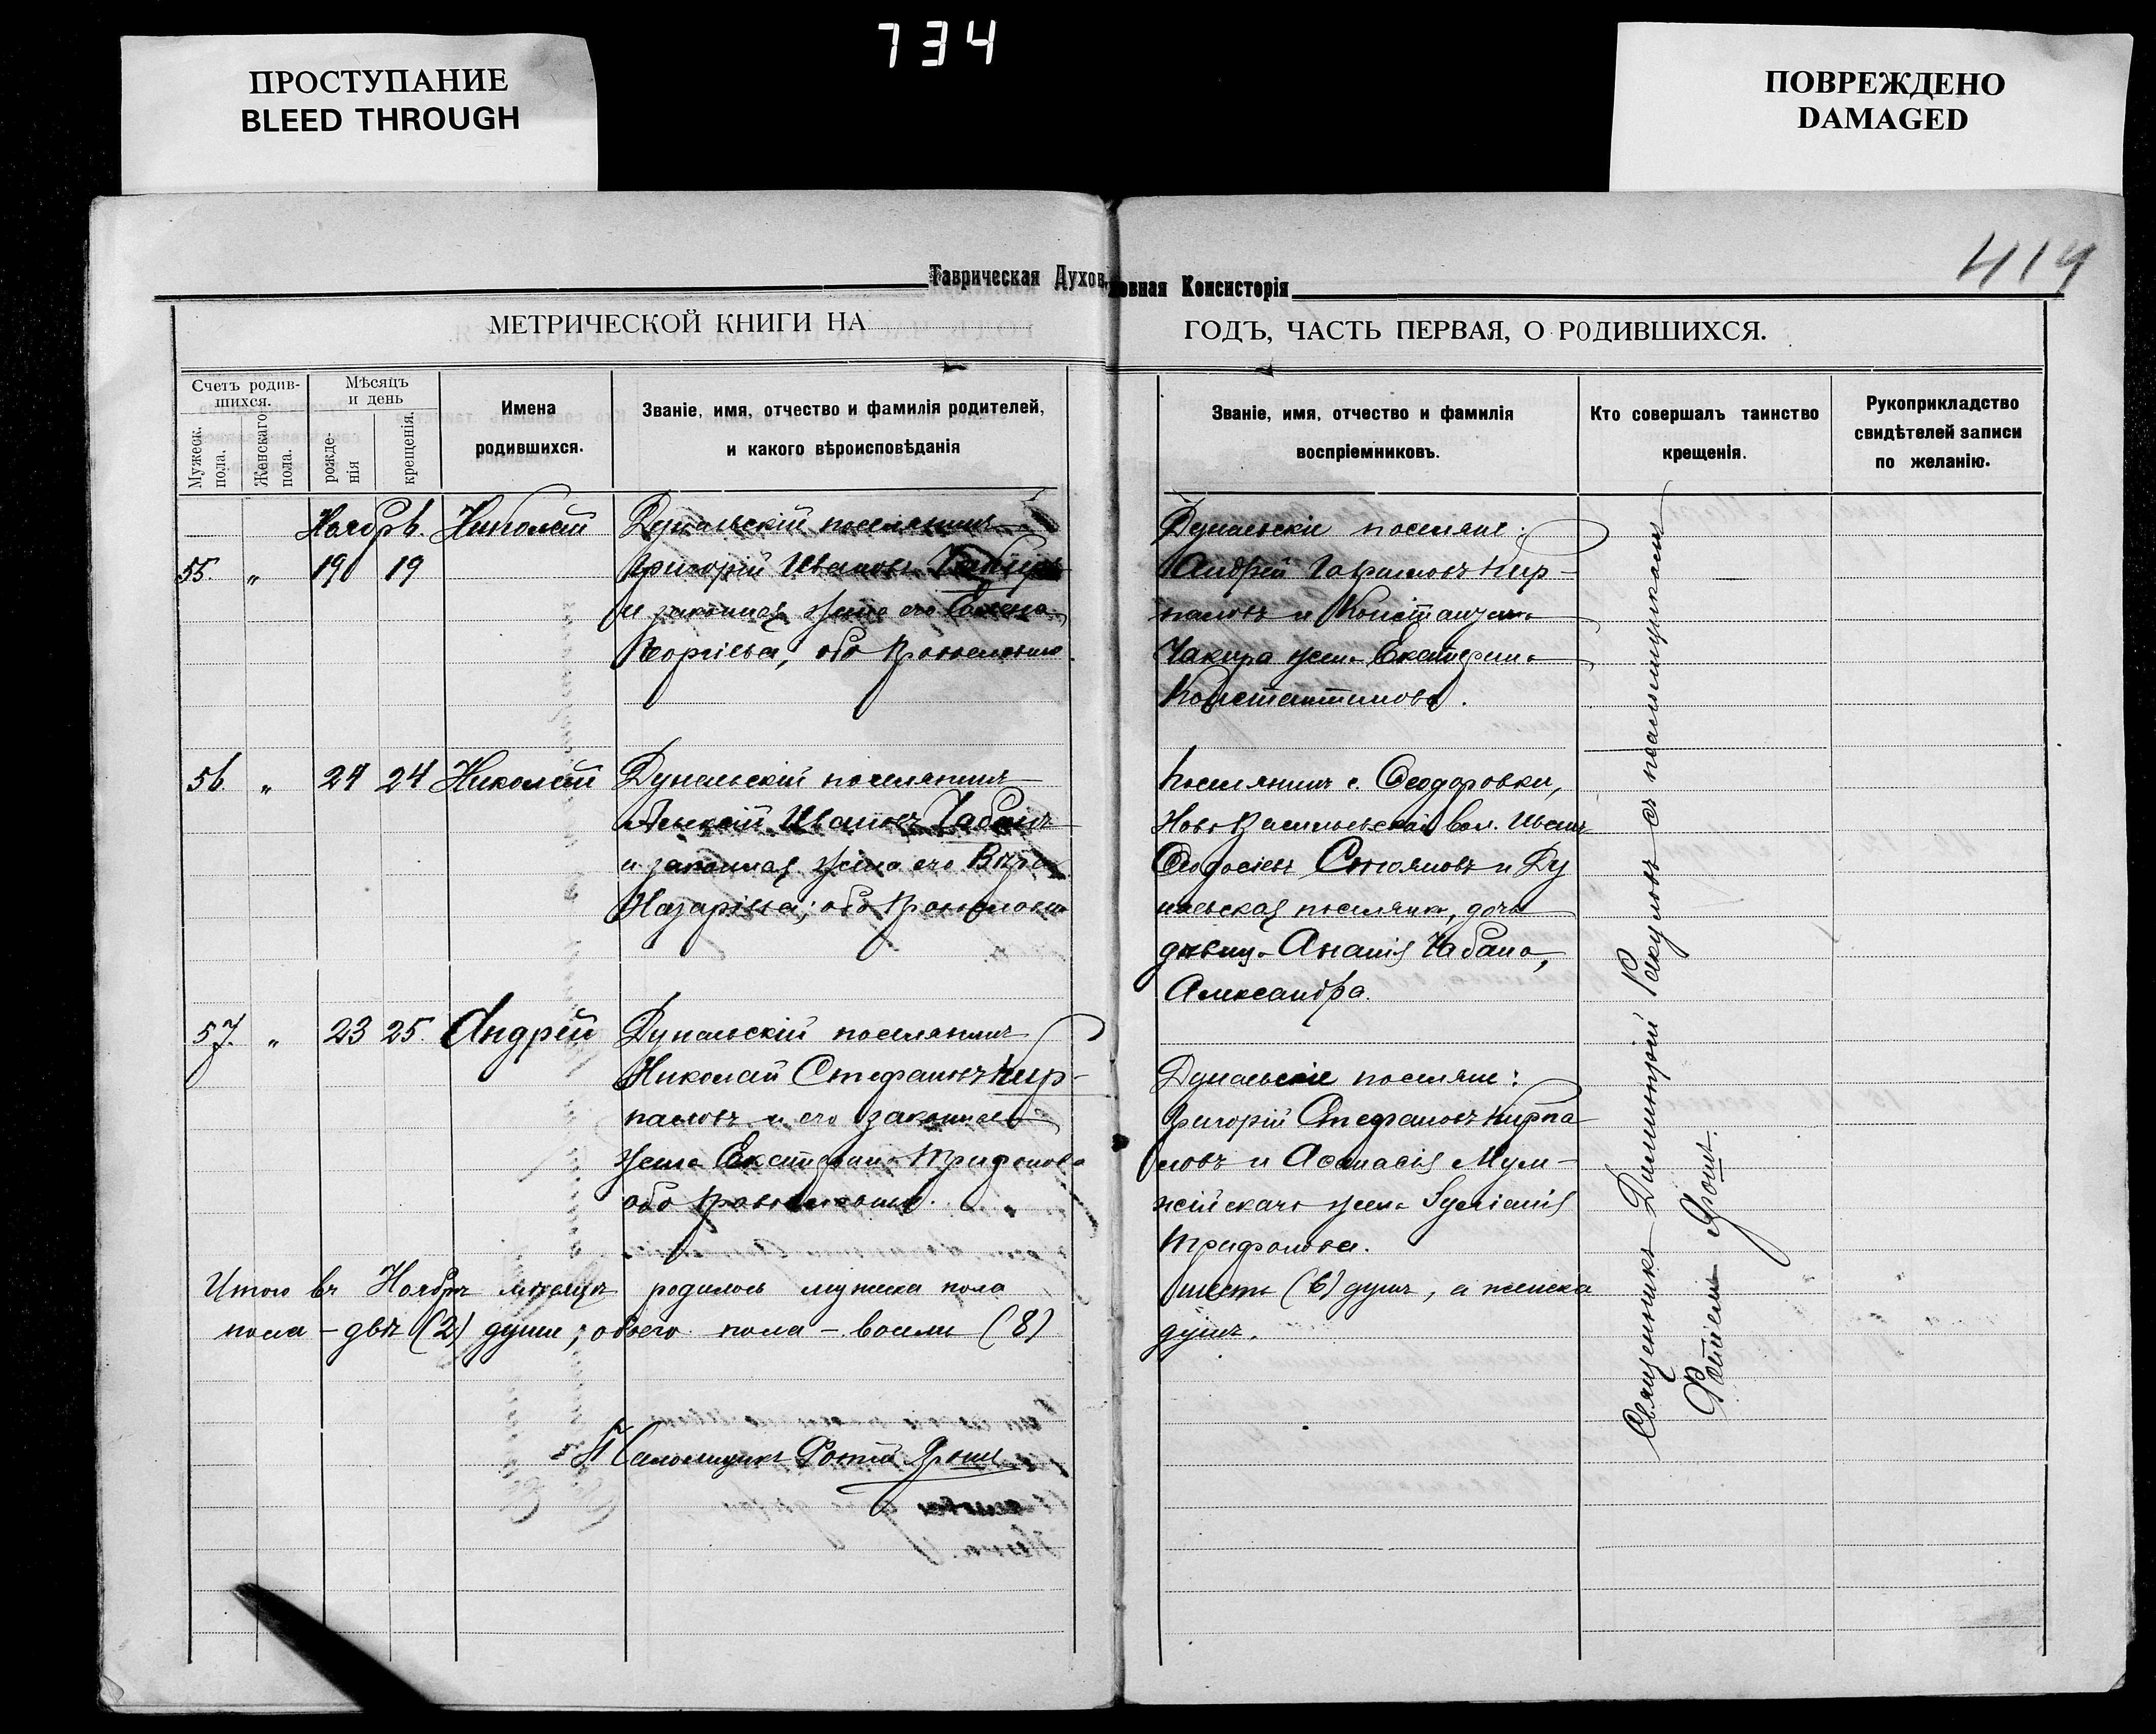 734
ПРОСТУПАНИЕ
BLEED THROUGH
ПОВРЕЖДЕНО
DAMAGED
414
Таврическая Духов
овная Консисторія
МЕТРИЧЕСКОЙ КНИГИ НА
ГОДЪ, ЧАСТЬ ПЕРВАЯ, О РОДИВШИХСЯ.
Счетъ родив-
шихся.
Мужеск.
пола.
Женскаго
пола.
Мѣсяцъ
и день
рожде-
нія
крещенія.
Имена
родившихся.
Званіе, имя, отчество и фамилія родителей,
и какого вѣроисповѣданія
Званіе, имя, отчество и фамилія
воспріемниковъ.
Кто совершалъ таинство
крещенія.
Рукоприкладство
свидѣтелей записи
по желанію.
Ноябрь. Николай
Дунаевскій поселянинъ
55. " 19 19
Григорій Ивановъ
и законная жена его Елена
Георгіева, оба православные.
Дунаевскіе поселяне:
Андрей Гавриловъ Кир-
паловъ и Константина
Чакира жена Екатерина
Константинова.
56. " 24 24 Николай
Дунаевскій поселянинъ
Алексій Ивановъ Чабанъ
и законная жена его Вѣра
Назаріева; оба православные
Поселянинъ с. Ѳеодоровки,
Ново Васильевской вол. Иванъ
Ѳеодосіевъ Стояновъ и Ду
наевская поселянка, дочь
дѣвица Ананія Чабана,
Александра.
57. " 23 25. Андрей
Дунаевскій поселянинъ
Николай Стефановъ Кир-
паловъ и его законная
жена Екатерина Трифонова
оба православные.
Дунаевскіе поселяне:
Григорій Стефановъ Кирпа
ловъ и Аѳанасія Мум-
жійскаго жена
Трифонова.
Итого въ Ноябрѣ мѣсяцѣ родилось мужеска пола
шесть (6) душъ, а женска
пола – двѣ (2) души; обоего пола – восемь (8)
душъ.
Псаломщикъ Фотій Ярошъ
Священникъ Димитрій Ракуловъ съ псаломщикомъ
Фотіемъ Ярошъ.